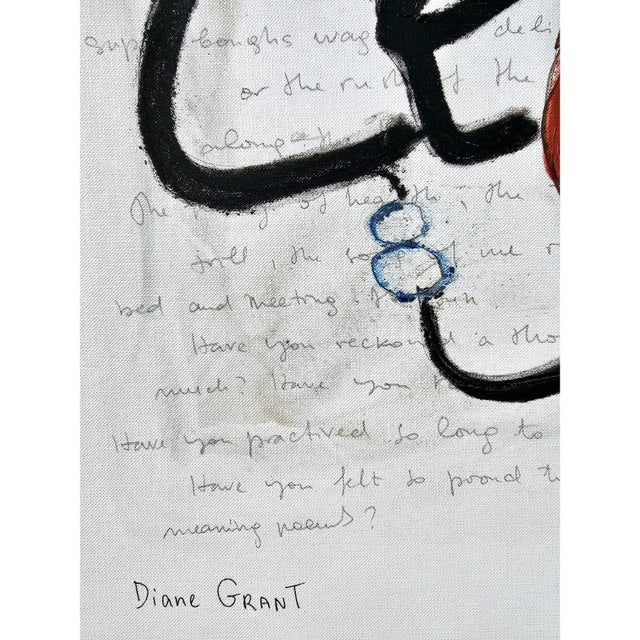 boughs wag deli
or the rush of the
along the
The of health, the
trill, the song of me r
bed and meeting
Have you reckon'd a tho
much? Have you r
Have you practised so long to
Have you felt so proud t
meaning poems?
Diane GRANT